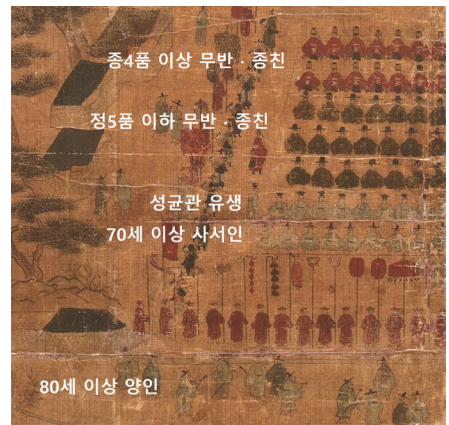 종4품 이상 무반 · 종친
정5품 이하 무반 · 종친
성균관 유생
70세 이상 사서인
80세 이상 양인